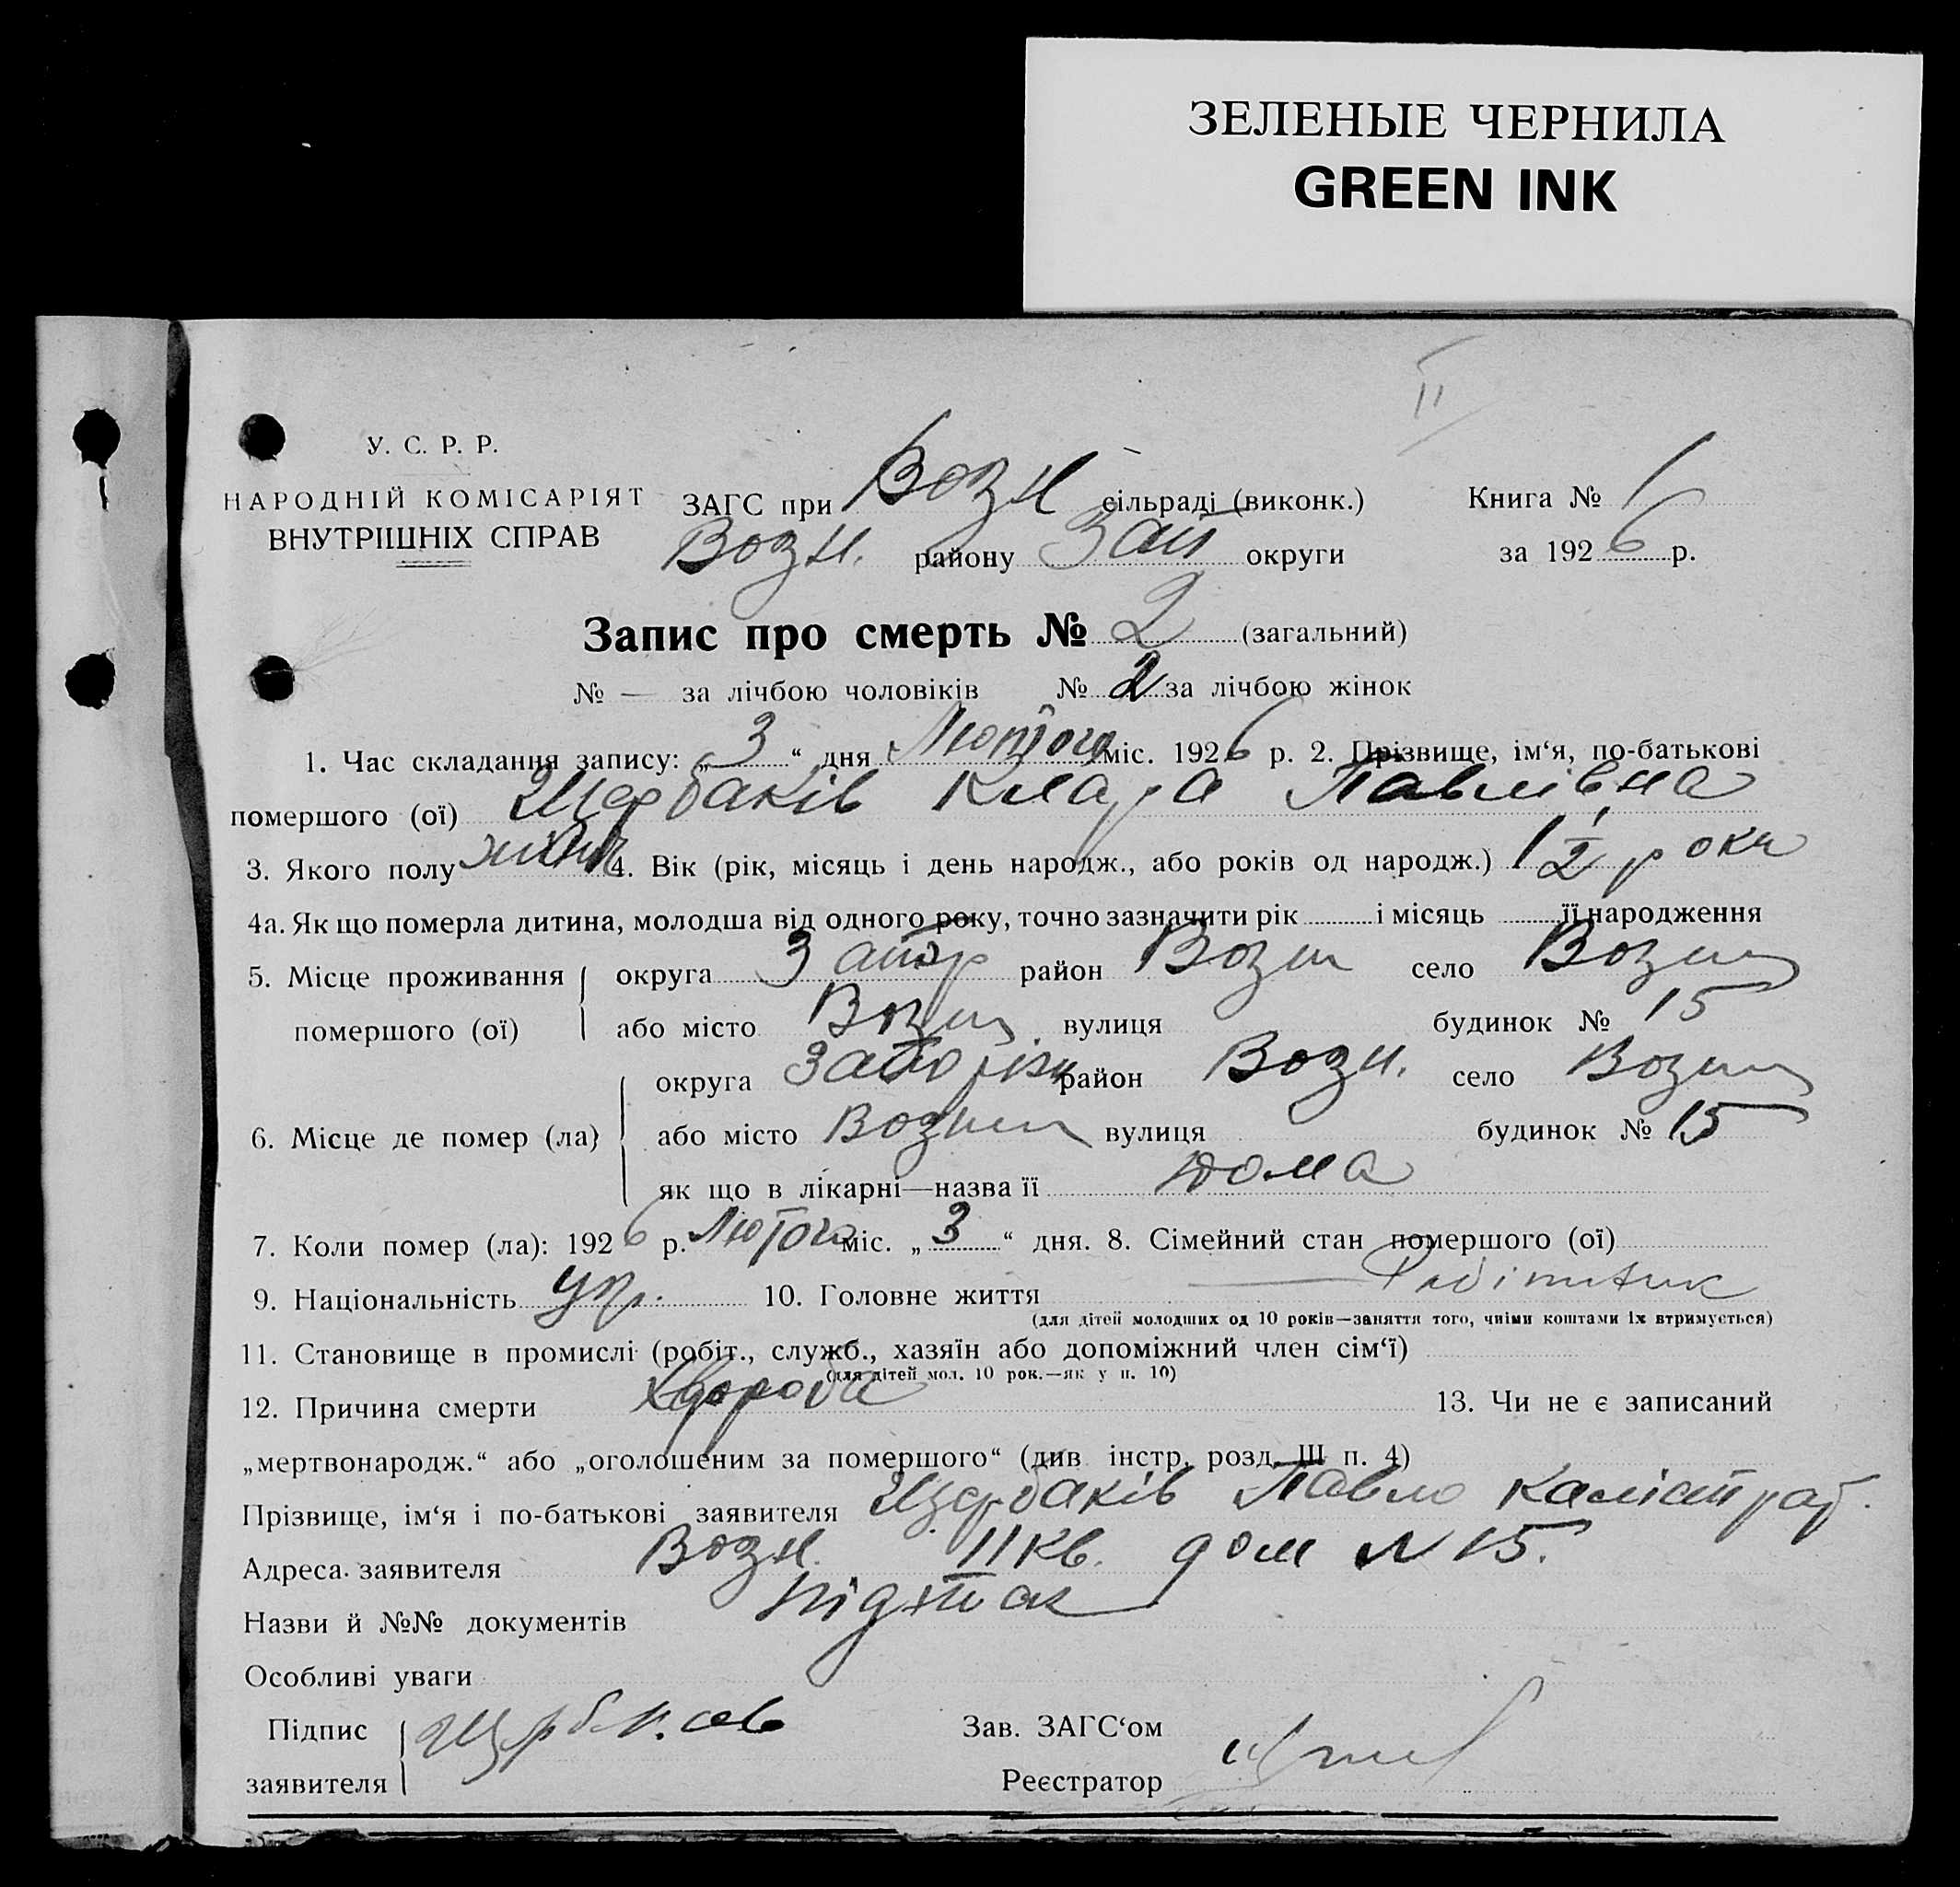 ЗЕЛЕНЫЕ ЧЕРНИЛА
GREEN INK
II
У. С. Р. Р.
НАРОДНІЙ КОМІСАРІЯТ
ВНУТРІШНІХ СПРАВ
ЗАГС при Возн сільраді (виконк.) Книга № 1
Возн. району Зап округи за 1926 р.
Запис про смерть № 2 (загальний)
№ — за лічбою чоловіків № 2 за лічбою жінок
1. Час складання запису: „3“ дня Лютого міс. 1926 р. 2. Прізвище, ім‘я, по-батькові
помершого (ої) Щербаків Клара Павлівна
3. Якого полу жіноч 4. Вік (рік, місяць і день народж., або років од народж.) 1 1/2 роки
4а. Як що померла дитина, молодша від одного року, точно зазначити рік і місяць її народження
5. Місце проживання округа Запор район Возн село Возн
помершого (ої) або місто Возн вулиця будинок № 15
округа Запорізьк район Возн. село Возн
6. Місце де помер (ла) або місто Возн вулиця будинок № 15
як що в лікарні—назва її дома
7. Коли помер (ла): 1926 р. Лютого міс. „3“ дня. 8. Сімейний стан помершого (ої)
9. Національність укр. 10. Головне життя — Робітник
(для дітей молодших од 10 років—заняття того, чиїми коштами їх втримується)
11. Становище в промислі (робіт., служб., хазяїн або допоміжний член сім‘ї)
(для дітей мол. 10 рок.—як у п. 10)
12. Причина смерти хвороба 13. Чи не є записаний
„мертвонародж.“ або „оголошеним за помершого“ (див інстр. розд. III п. 4)
Прізвище, ім‘я і по-батькові заявителя Щербаків Павло Калістрат.
Адреса заявителя Возн. II кв. дом № 15.
Назви й №№ документів
Особливі уваги
Підпис Щербаков Зав. ЗАГС‘ом
заявителя Реєстратор